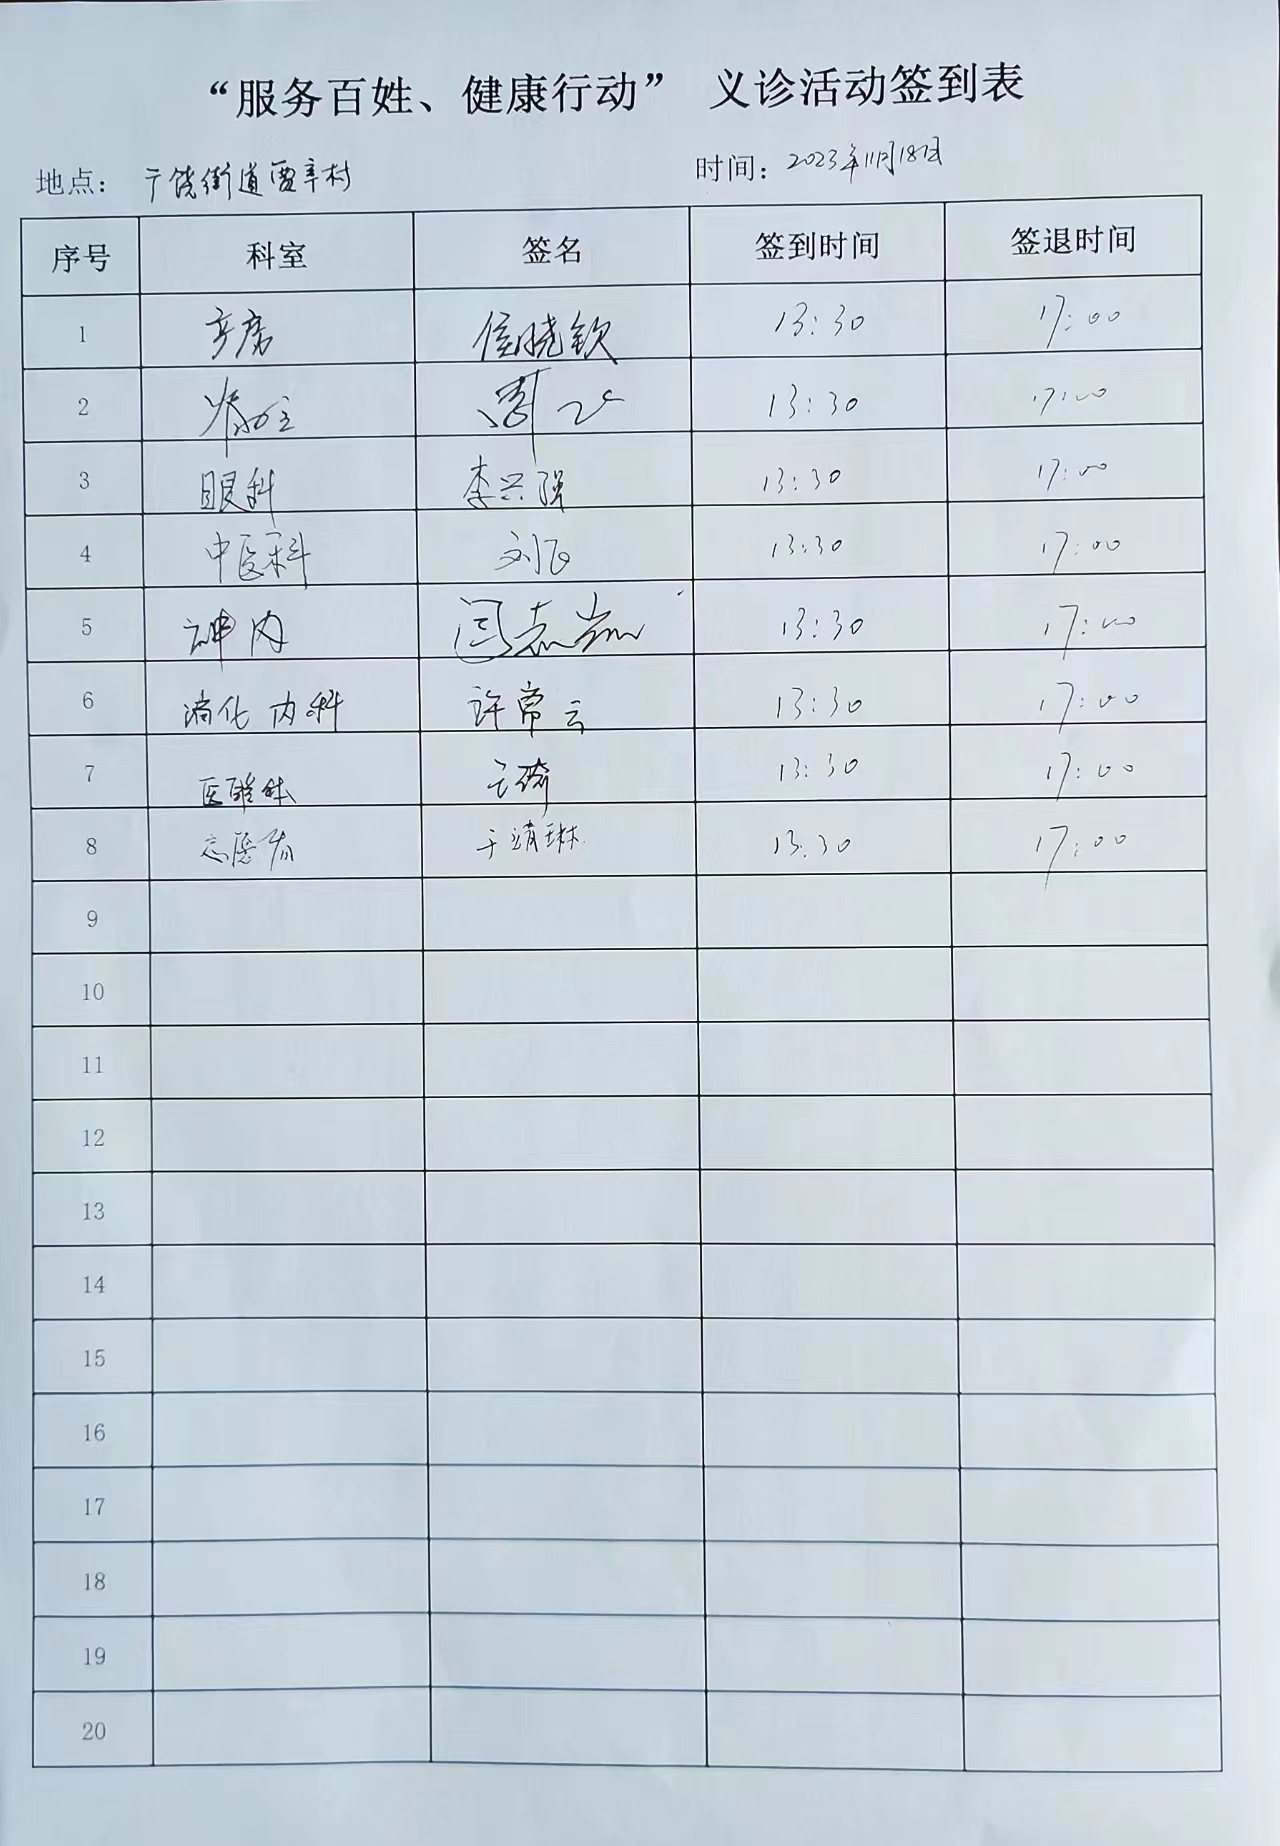 “服务百姓、健康行动” 义诊活动签到表
地点： 广饶街道西辛村 时间： 2023年11月18日
序号 科室 签名 签到时间 签退时间
1 产房 信晓钦 13:30 17:00
2 13:30 17:00
3 眼科 李兴强 13:30 17:00
4 中医科 刘飞 13:30 17:00
5 神内 闫志 13:30 17:00
6 消化内科 许常云 13:30 17:00
7 13:30 17:00
8 志愿者 于靖琳 13:30 17:00
9
10
11
12
13
14
15
16
17
18
19
20